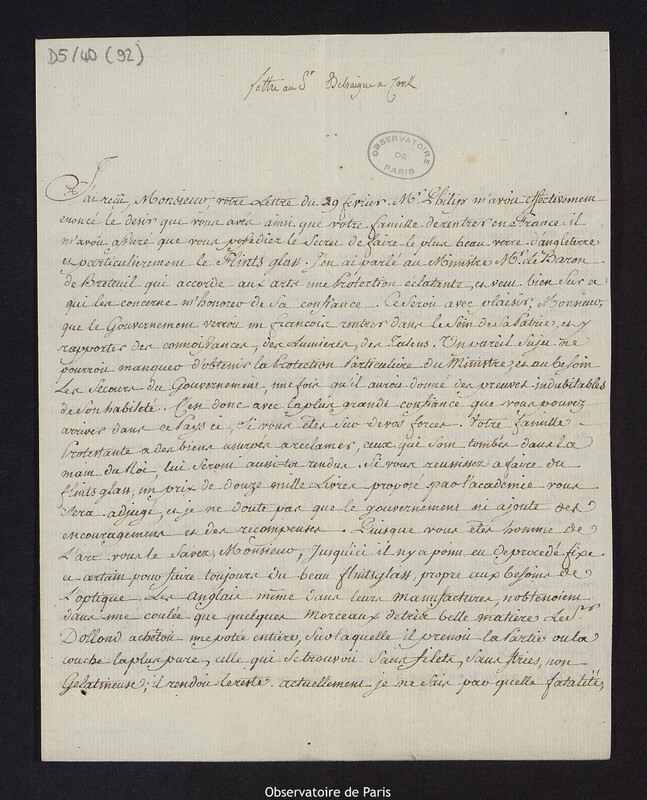 D5/40 (92)
lettre au Sr Delzaigue a Cork
OBSERVATOIRE DE PARIS
J'ai reçû, Monsieur, votre Lettre du 29 fevrier. Mr. Philip m'avoit effectivement
enoncé le desir que vous avés ainsi que votre famille de rentrer en france il
m'avoit assuré que vous possédiez le Secret de faire le plus beau verre d'angleterre
et particulierement le flints glass. J'en ai parlé au Ministre Mr. de Baron
de Breteuil qui accorde aux arts une Protection éclatante, et veut bien sur ce
qui les concerne m'honorer de sa confiance. Ce seroit avec plaisir, Monsieur,
que le Gouvernement verroit un francois rentrer dans le Sein de Sa Patrie, et y
rapporter des connoissances, des Lumieres, des Talens. Un pareil Sujet ne
pourroit manquer d'obtenir la Protection Particuliere du Ministre, et au besoin
Les Secours du Gouvernement, une fois qu'il auroit donné des preuves indubitables
de son habileté. C'est donc avec la plus grande confiance que vous pouvez
arriver dans ce Pays ci, Si vous êtes Sur de vos forces. Votre famille
Protestante a des biens usurpés a reclamer, ceux qui sont tombés dans la
main du Roi, lui seront aussitot rendus. Si vous reussissez a faire du
flints glass, un prix de douze mille Livres proposé par l'académie vous
Sera adjugé, et je ne doute pas que le gouvernement n'i ajoute des
encouragemens et des recompenses. Puisque vous êtes homme de
L'art vous le Savez, Monsieur, jusqu'ici il n'y a point eu de procedé fixe
et certain pour faire toujours du beau flintsglass, propre aux besoins de
L'optique. Les anglais même dans leurs manufactures, n'obtenoient
dans une coulée que quelques morceaux de très belle matiere. Le Sr.
Dollond achetoit une potée entiere, Sur laquelle il prenoit la Partie ou la
couche la plus pure, celle qui Se trouvoit Sans filets, Sans stries, non
Gelatineuse; il rendoit le reste. actuellement je ne Sais par quelle fatalité,
Observatoire de Paris